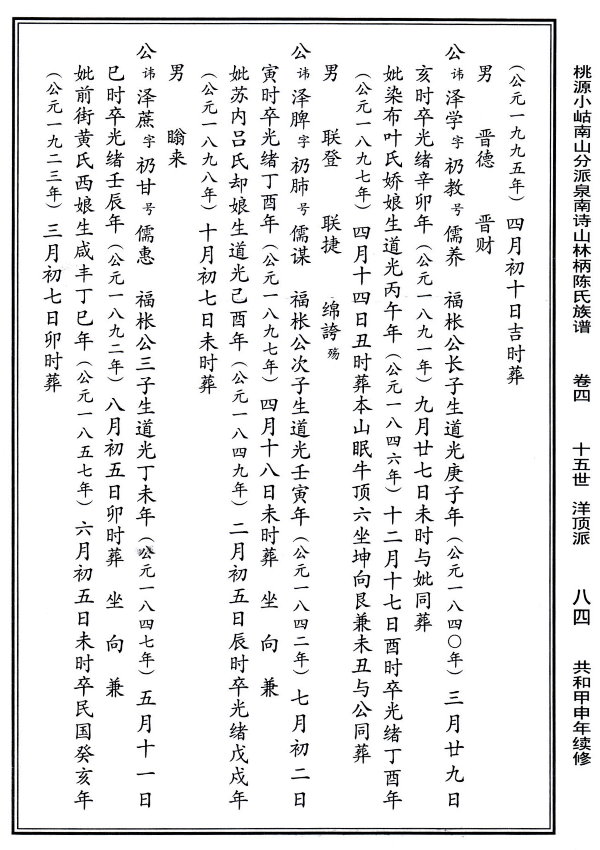 桃源小岵南山分派泉南诗山林柄陈氏族谱 卷四 十五世 洋顶派 八四 共和甲申年续修
（公元一九九五年）四月初十日吉时葬
男 晋德 晋财
公讳泽学字礽教号儒养 福枨公长子生道光庚子年（公元一八四〇年）三月廿九日
亥时卒光绪辛卯年（公元一八九一年）九月廿七日未时与妣同葬
妣染布叶氏娇娘生道光丙午年（公元一八四六年）十二月十七日酉时卒光绪丁酉年
（公元一八九七年）四月十四日丑时葬本山眠牛顶六坐坤向艮兼未丑与公同葬
男 联登 联捷 绵誇殇
公讳泽脾字礽肺号儒谋 福枨公次子生道光壬寅年（公元一八四二年）七月初二日
寅时卒光绪丁酉年（公元一八九七年）四月十八日未时葬 坐 向 兼
妣苏内吕氏却娘生道光己酉年（公元一八四九年）二月初五日辰时卒光绪戊戌年
（公元一八九八年）十月初七日未时葬
男 𥊙来
公讳泽蔗字礽甘号儒惠 福枨公三子生道光丁未年（公元一八四七年）五月十一日
巳时卒光绪壬辰年（公元一八九二年）八月初五日卯时葬 坐 向 兼
妣前街黄氏西娘生咸丰丁巳年（公元一八五七年）六月初五日未时卒民国癸亥年
（公元一九二三年）三月初七日卯时葬